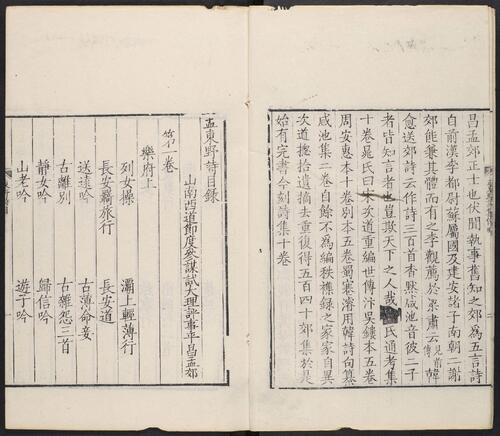 昌孟郊正士也伏聞執事舊知之郊為五言詩
自前漢李都尉蘇屬國及建安諸子南朝二謝
郊能兼其體而有之李觀薦於梁肅云見前傳韓
愈送郊詩云作詩三百首杳默咸池音彼二子
者皆知言者也豈欺天下之人哉 氏通考集
十卷晁氏曰宋次道重編世傳汴吳鏤本五卷
周安惠本十卷別本五卷蜀蹇濬用韓詩句纂
咸池集二卷自餘不為編秩襍錄之家家自異
次道摠拾遺摘去重復得五百四十郊集於是
始有完書今刻詩集十卷
孟東野詩目錄
山南西道節度參謀試大理評事平昌孟郊
第一卷
樂府上
列女操 灞上輕薄行
長安羈旅行 長安道
送遠吟 古薄命妾
古離別 古雜怨三首
靜女吟 歸信吟
山老吟 遊子吟